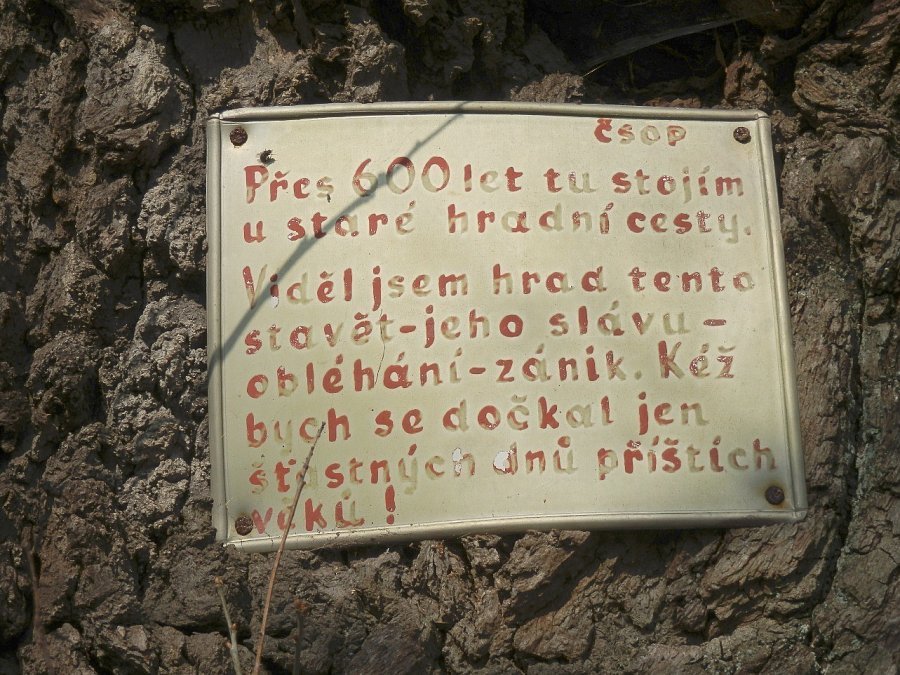 ČSOP
Přes 600 let tu stojím
u staré hradní cesty.
Viděl jsem hrad tento
stavět-jeho slávu-
obléhání-zánik. Kéž
bych se dočkal jen
šťastných dnů příštích
věků!